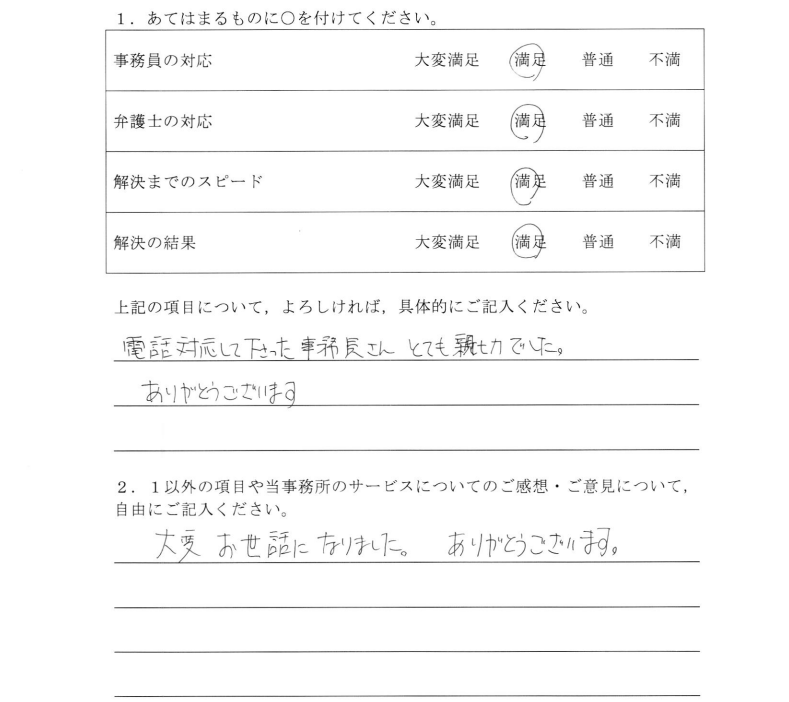 1．あてはまるものに○を付けてください。
事務員の対応 大変満足 満足 普通 不満
弁護士の対応 大変満足 満足 普通 不満
解決までのスピード 大変満足 満足 普通 不満
解決の結果 大変満足 満足 普通 不満
上記の項目について，よろしければ，具体的にご記入ください。
電話対応して下さった事務長さん とても親切でした。
ありがとうございます
2．1以外の項目や当事務所のサービスについてのご感想・ご意見について，
自由にご記入ください。
大変 お世話になりました。 ありがとうございます。